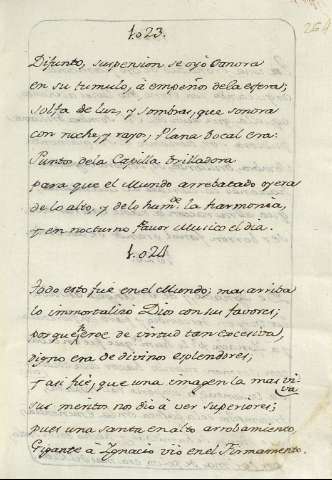 1.023.
264
Difunto, suspension se oyò Canora
en su tumulo, à empeños dela esfera;
solfa de luz, y sombras, que sonora
con noche, y rayos, Plana Bocal era:
Puntos dela Capilla brilladora
para que el Mundo arrebatado oyera
de lo alto, y delo humde. la harmonia,
Y en nocturno favor Musico el dia.
1.024
Todo esto fué en el Mundo; mas arriba
lo immortalizò Dios con sus favores;
porque Heroe de virtud tan excesiva,
digno era de divinos esplendores;
Y asi fué, que una imagen la mas viva
sus meritos no diò à ver superiores;
pues una santa en alto arrobamiento
Gigante à Ignacio viò en el Firmamento.